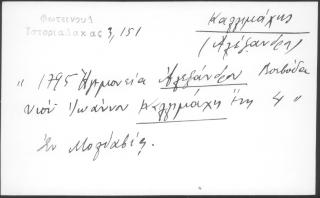 Φωτεινου
Ιστορια Δακας 3, 151
Καλλιμάχης
(Αλέξανδρ
" 1795 Ηγεμονεία Αλεξάνδρου Βοεβόδα
υιού Ιωάννου Καλλιμάχη έτη 4 "
Εν Μολδαβίᾳ.